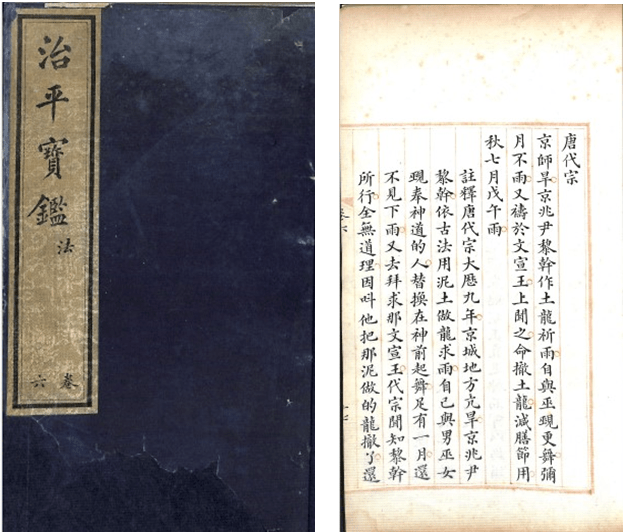 治平寶鑑
法
卷六
唐代宗
京師旱京兆尹黎幹作土龍祈雨自與巫覡更舞彌
月不雨又禱於文宣王上聞之命撤土龍減膳節用
秋七月戊午雨
註釋唐代宗大厯九年京城地方亢旱京兆尹
黎幹依古法用泥土做龍求雨自己與男巫女
覡奉神道的人替換在神前起舞足有一月還
不見下雨又去拜求那文宣王代宗聞知黎幹
所行全無道理因呌他把那泥做的龍撤了還